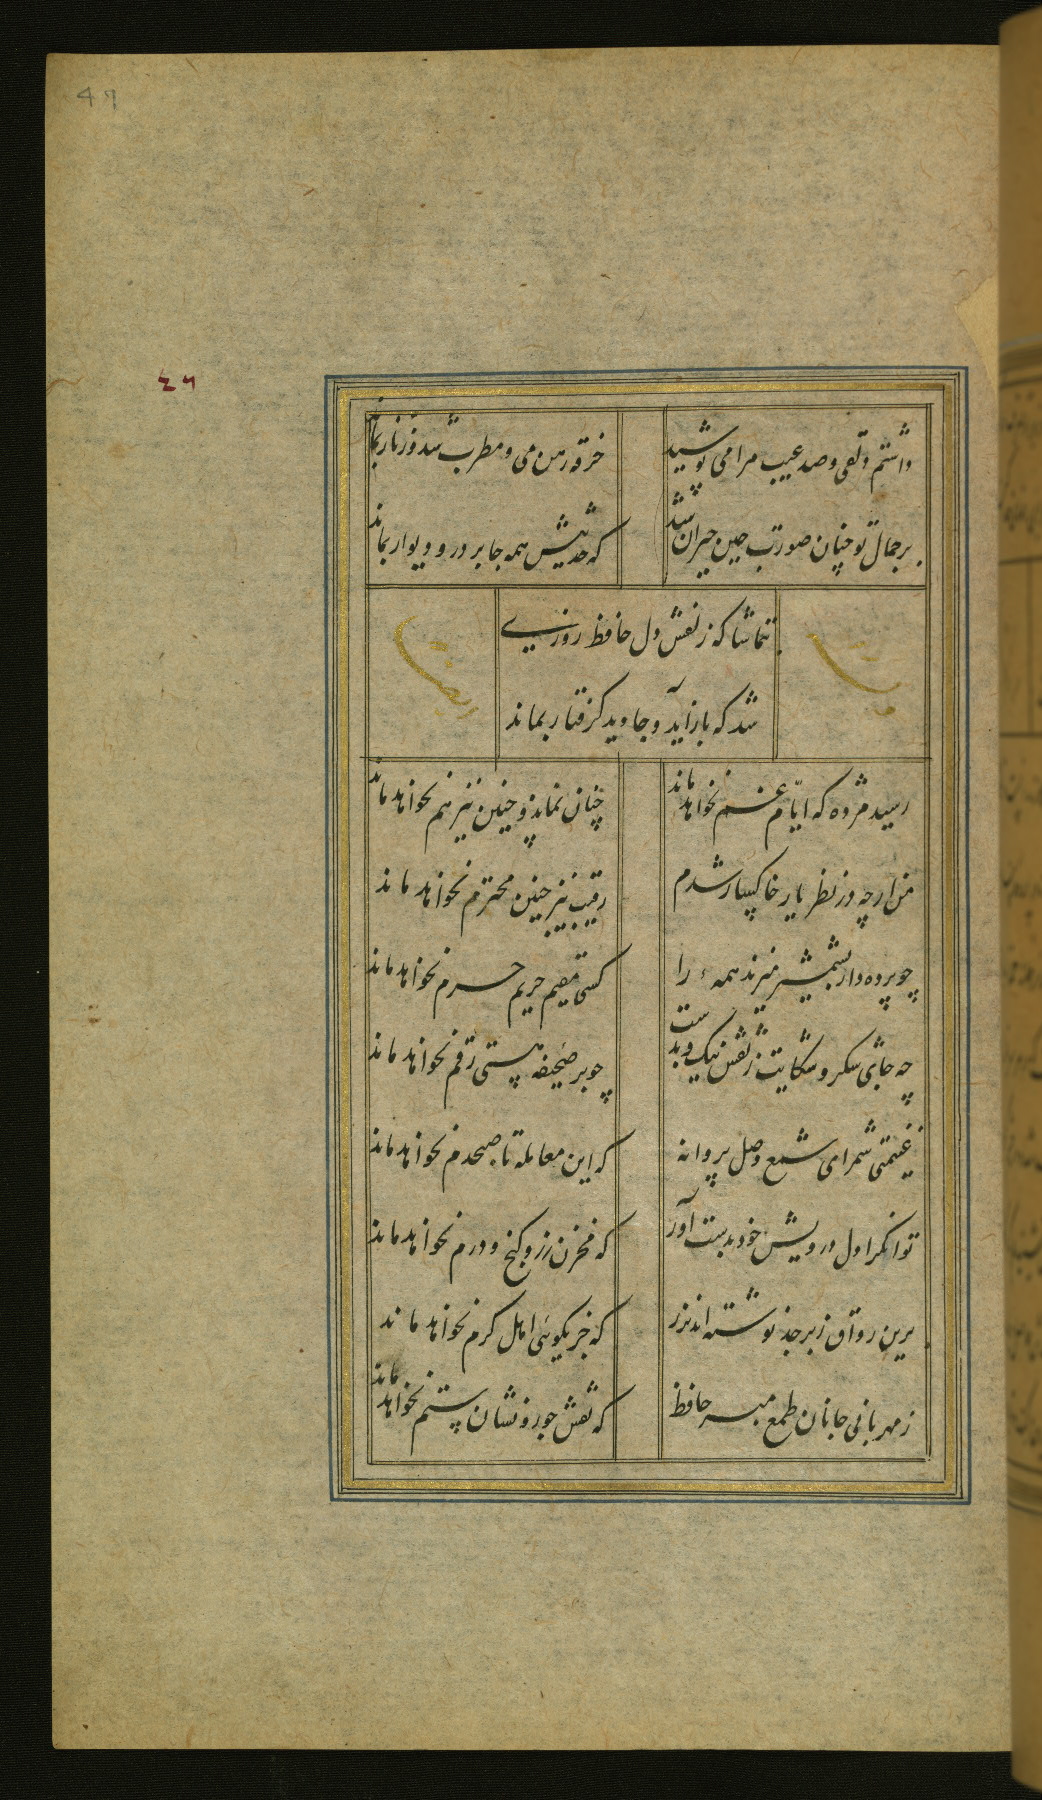 49
٤٦
داشتم دلقی و صد عیب مرا می پوشید
خرقه رهن می و مطرب شد و زنار بماند
بر جمال تو چنان صورت چین حیران شد
که حدیثش همه جا بر در و دیوار بماند
بتماشا که زلفش دل حافظ روزی
شد که باز آید و جاوید گرفتار بماند
وله
ایضا
رسید مژده که ایام غم نخواهد ماند
چنان نماند و چنین نیز هم نخواهد ماند
من ار چه در نظر یار خاکسار شدم
رقیب نیز چنین محترم نخواهد ماند
چو پرده دار بشمشیر میزند همه را
کسی مقیم حریم حرم نخواهد ماند
چه جای شکر و شکایت ز نقش نیک و بدست
چو بر صحیفه هستی رقم نخواهد ماند
غنیمتی شمر ای شمع وصل پروانه
که این معامله تا صبحدم نخواهد ماند
توانگرا دل درویش خود بدست آور
که مخزن زر و گنج و درم نخواهد ماند
برین رواق زبرجد نوشته اند بزر
که جز نکوئی اهل کرم نخواهد ماند
ز مهربانی جانان طمع مبر حافظ
که نقش جور و نشان ستم نخواهد ماند